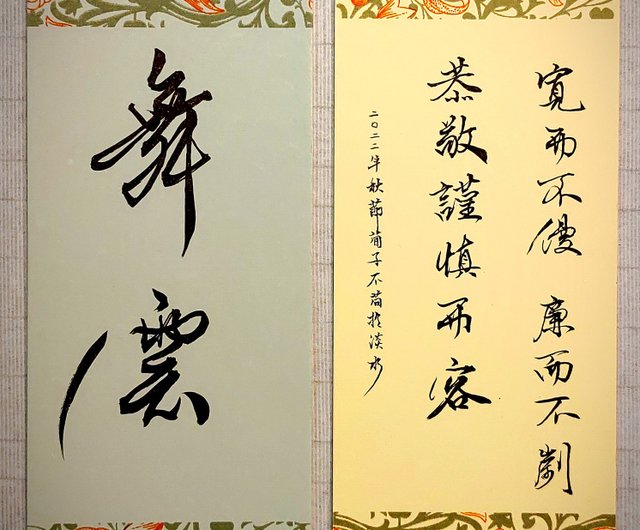 舞雲
寬而不僈 廉而不劌
恭敬謹慎而容
二〇二二年秋節荀子不苟於淡水